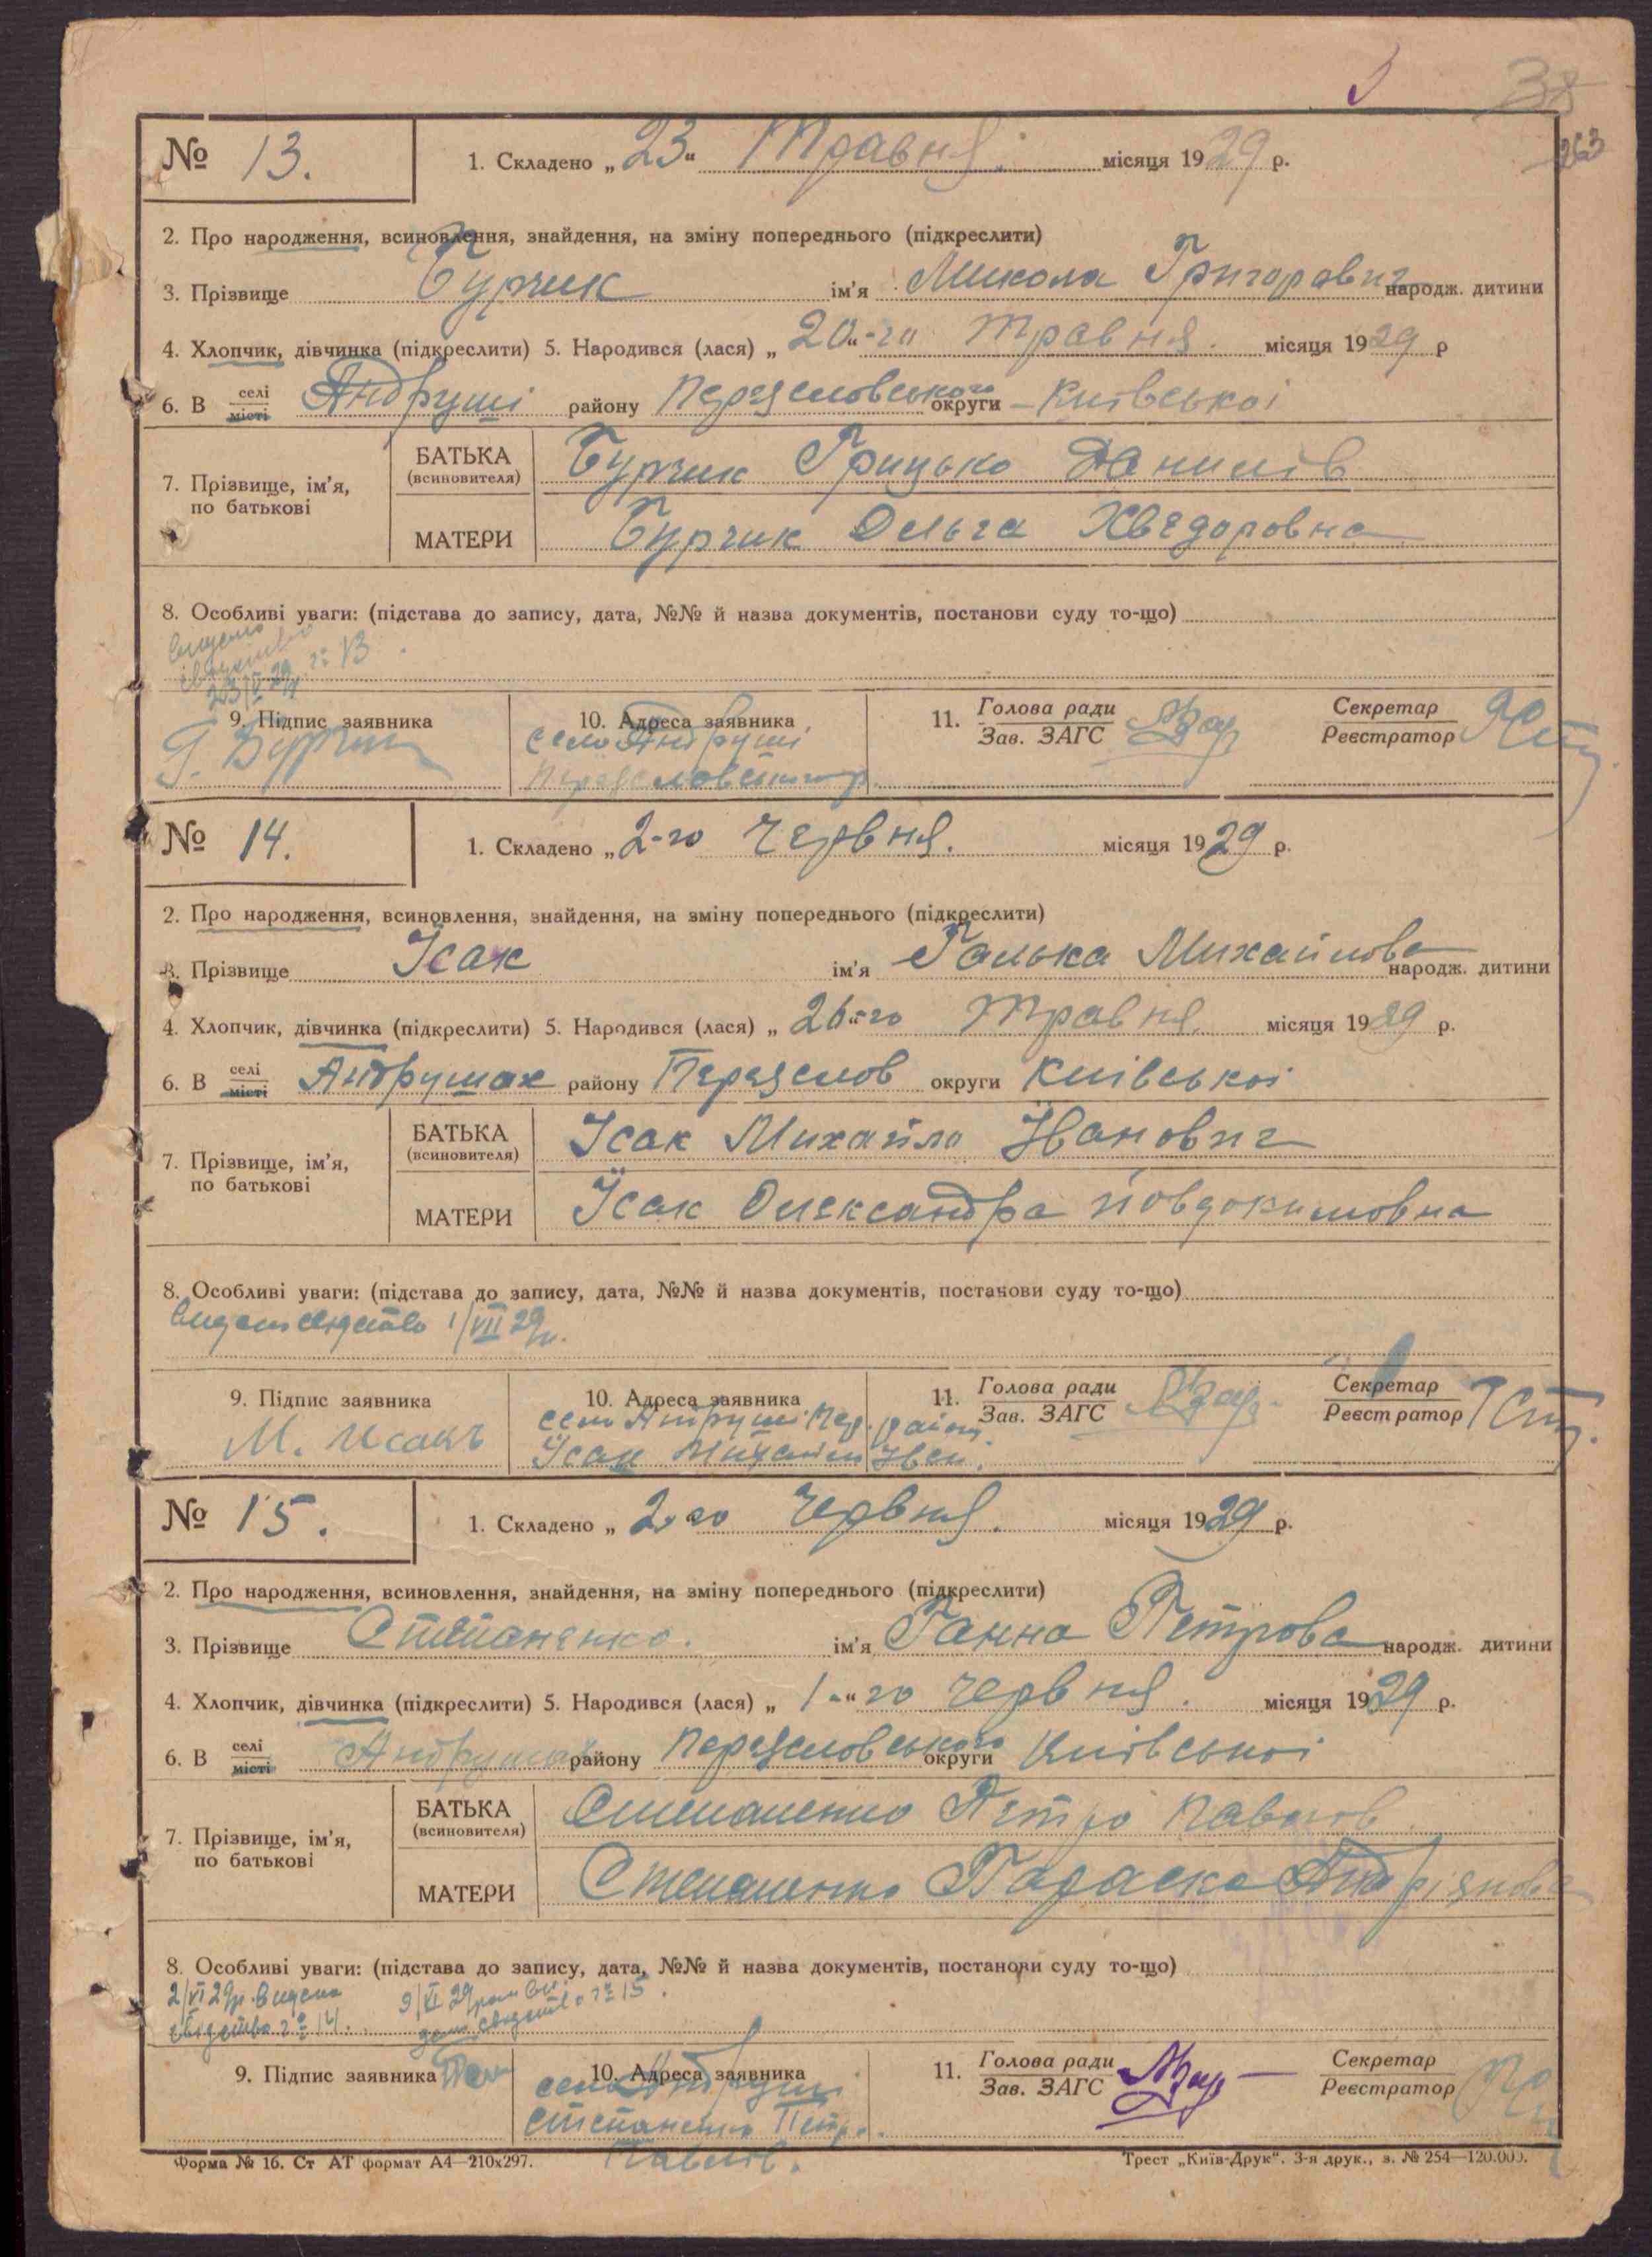 38
263
№ 13. 1. Складено „23“ Травня. місяця 1929 р.
2. Про народження, всиновлення, знайдення, на зміну попереднього (підкреслити)
3. Прізвище Бурчик ім'я Микола Григорович народж. дитини
4. Хлопчик, дівчинка (підкреслити) 5. Народився (лася) „20“-го Травня. місяця 1929 р
6. В селі місті Андруші району Переяславського округи Київської
7. Прізвище, ім'я, по батькові
БАТЬКА (всиновителя) Бурчик Грицько Данилів
МАТЕРИ Бурчик Ольга Хведоровна
8. Особливі уваги: (підстава до запису, дата, №№ й назва документів, постанови суду то-що)
9. Підпис заявника 10. Адреса заявника 11. Голова ради Зав. ЗАГС Секретар Реєстратор
Г. Бурчик село Андруші
№ 14. 1. Складено „2-го Червня. місяця 1929 р.
2. Про народження, всиновлення, знайдення, на зміну попереднього (підкреслити)
3. Прізвище Ісак ім'я Галька Михайлова народж. дитини
4. Хлопчик, дівчинка (підкреслити) 5. Народився (лася) „26“-го Травня місяця 1929 р.
6. В селі місті Андрушах району Переяслов округи Київської
7. Прізвище, ім'я, по батькові
БАТЬКА (всиновителя) Ісак Михайло Іванович
МАТЕРИ Ісак Олександра Йовдокимовна
8. Особливі уваги: (підстава до запису, дата, №№ й назва документів, постанови суду то-що)
1/VII 29р.
9. Підпис заявника 10. Адреса заявника 11. Голова ради Зав. ЗАГС Секретар Реєстратор
М. Исакъ село Андруші Пер. район
Ісак Михайло Іван.
№ 15. 1. Складено „2-го Червня. місяця 1929 р.
2. Про народження, всиновлення, знайдення, на зміну попереднього (підкреслити)
3. Прізвище Степаненко. ім'я Ганна Петрова народж. дитини
4. Хлопчик, дівчинка (підкреслити) 5. Народився (лася) „1“-го Червня. місяця 1929 р.
6. В селі місті Андрушах району Переясловського округи Київської
7. Прізвище, ім'я, по батькові
БАТЬКА (всиновителя) Степаненко Петро Павлов
МАТЕРИ Степаненко Параска Андріянова
8. Особливі уваги: (підстава до запису, дата, №№ й назва документів, постанови суду то-що)
2/VI 29р. видено
свідетво № 14.
9. Підпис заявника 10. Адреса заявника 11. Голова ради Зав. ЗАГС Секретар Реєстратор
село Андруші
Степаненко Петр.
Павлов.
Форма № 16. Ст АТ формат А4—210х297. Трест „Київ-Друк“. 3-я друк., з. № 254—120.000.